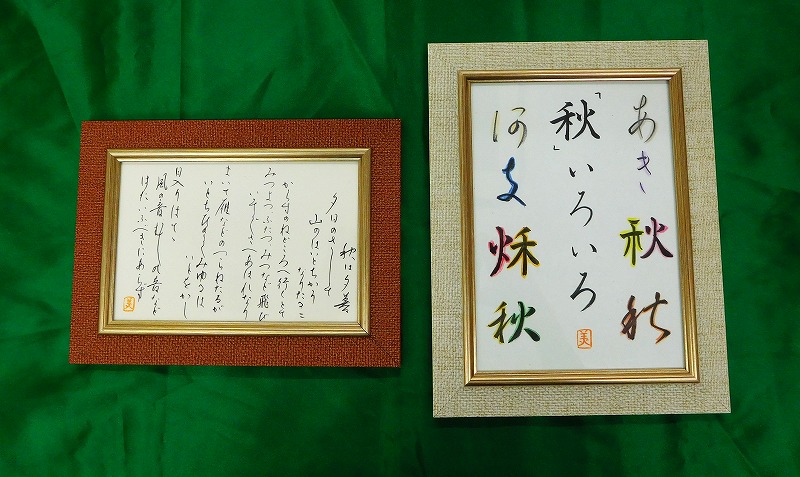 あき秋秋
「秋」いろいろ
阿支秌秋
美
秋は夕暮
夕日のさして
山のはいとちかう
なりたるに
からすのねどころへ行くとて
みつよつふたつみつなど飛び
いそぐさへあはれなり
まいて雁などのつらねたるが
いとちひさくみゆるは
いとをかし
日入りはてて
風の音むしの音など
はたいふべきにあらず
美